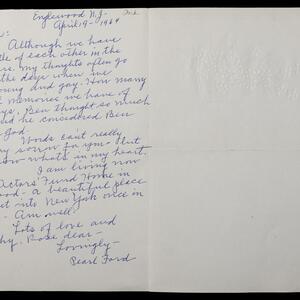 Englewood N.J.
April 9 - 1964
Although we have
of each other in the
my thoughts often go
the days when we
young and gay. How many
memories we have of
Ben thought so much
and he considered Ben
God
Words can't really
my sorrow for you - but
know what's in my heart.
I am living now
Actors' Fund Home in
a beautiful place
get into New York once in
Am well.
Lots of love and
Rose dear -
Lovingly -
Pearl Ford